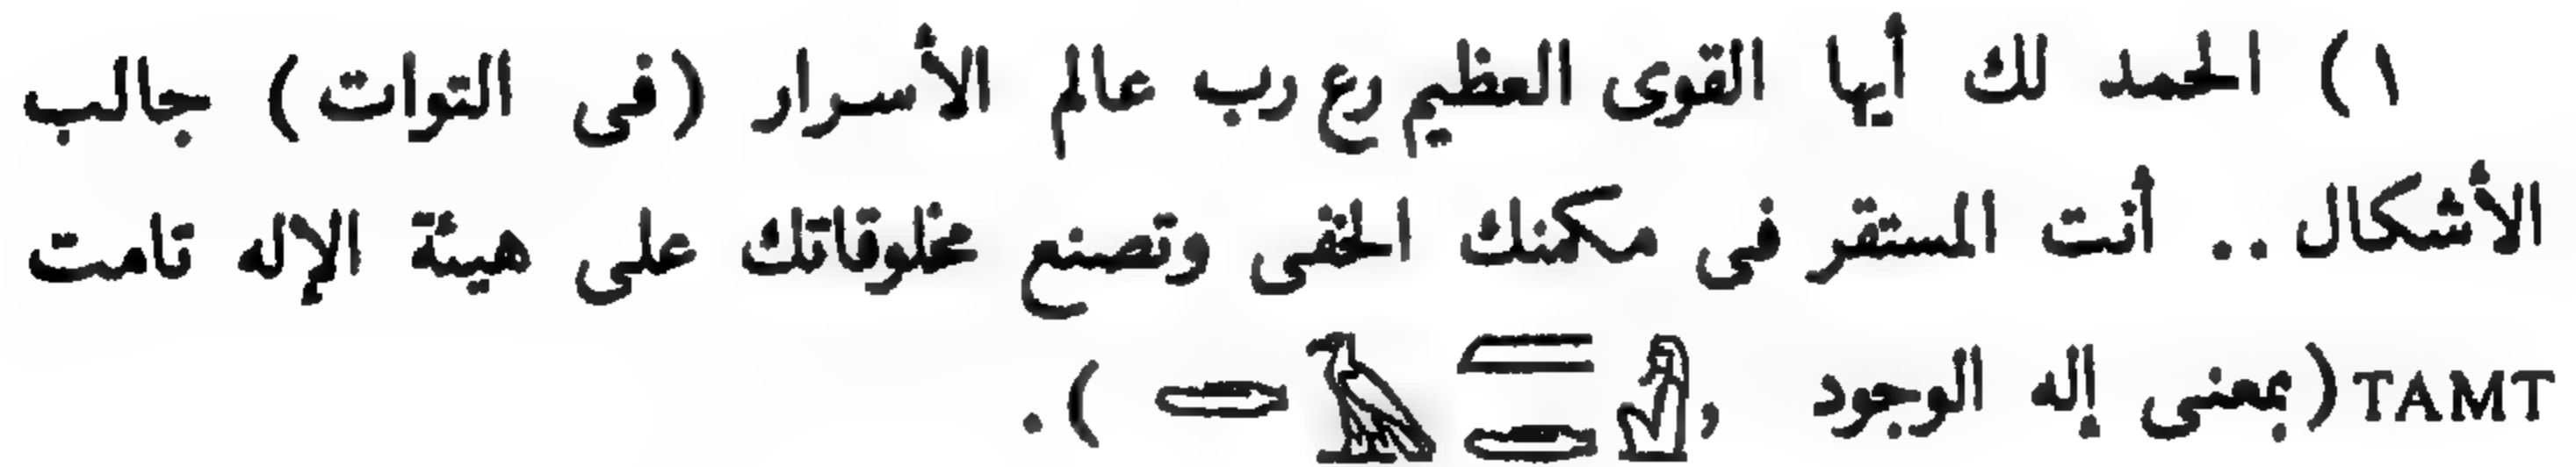 ١) الحمد لك أيها القوى العظيم رع رب عالم الأسرار (فى التوات) جالب
الأشكال .. أنت المستقر فى مكمنك الخفى وتصنع مخلوقاتك على هيئة الإله تامت
TAMT (بمعنى إله الوجود , ).